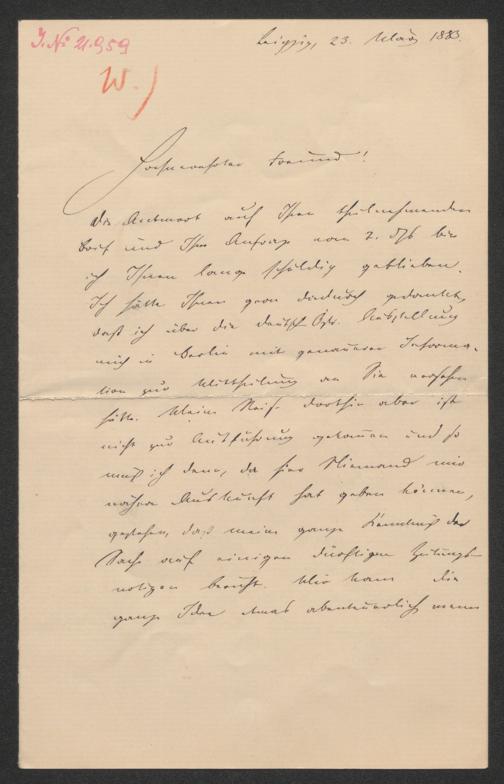 J. № 21.959
Leipzig, 23. März 1883.
W.)
Hochverehrter Freund!
Die Antwort auf Ihren theilnehmenden
Brief und Ihre Anfrage vom 2. ds bin
ich Ihnen lange schuldig geblieben.
Ich hätte Ihnen gern dadurch gedankt,
daß ich über die deutsch Ausstellung
mich in Berlin mit genauerer Informa-
tion zur Mittheilung an Sie versehen
hätte. Meine Reise dorthin aber ist
nicht zur Ausführung gekommen und so
muß ich denn, da hier Niemand mir
nähere Auskunft hat geben können,
gestehen, daß meine ganze Kenntniß der
Sache auf einigen dürftigen Zeitungs-
notizen beruht. Mir kam die
ganze Idee etwas abenteuerlich, wenn